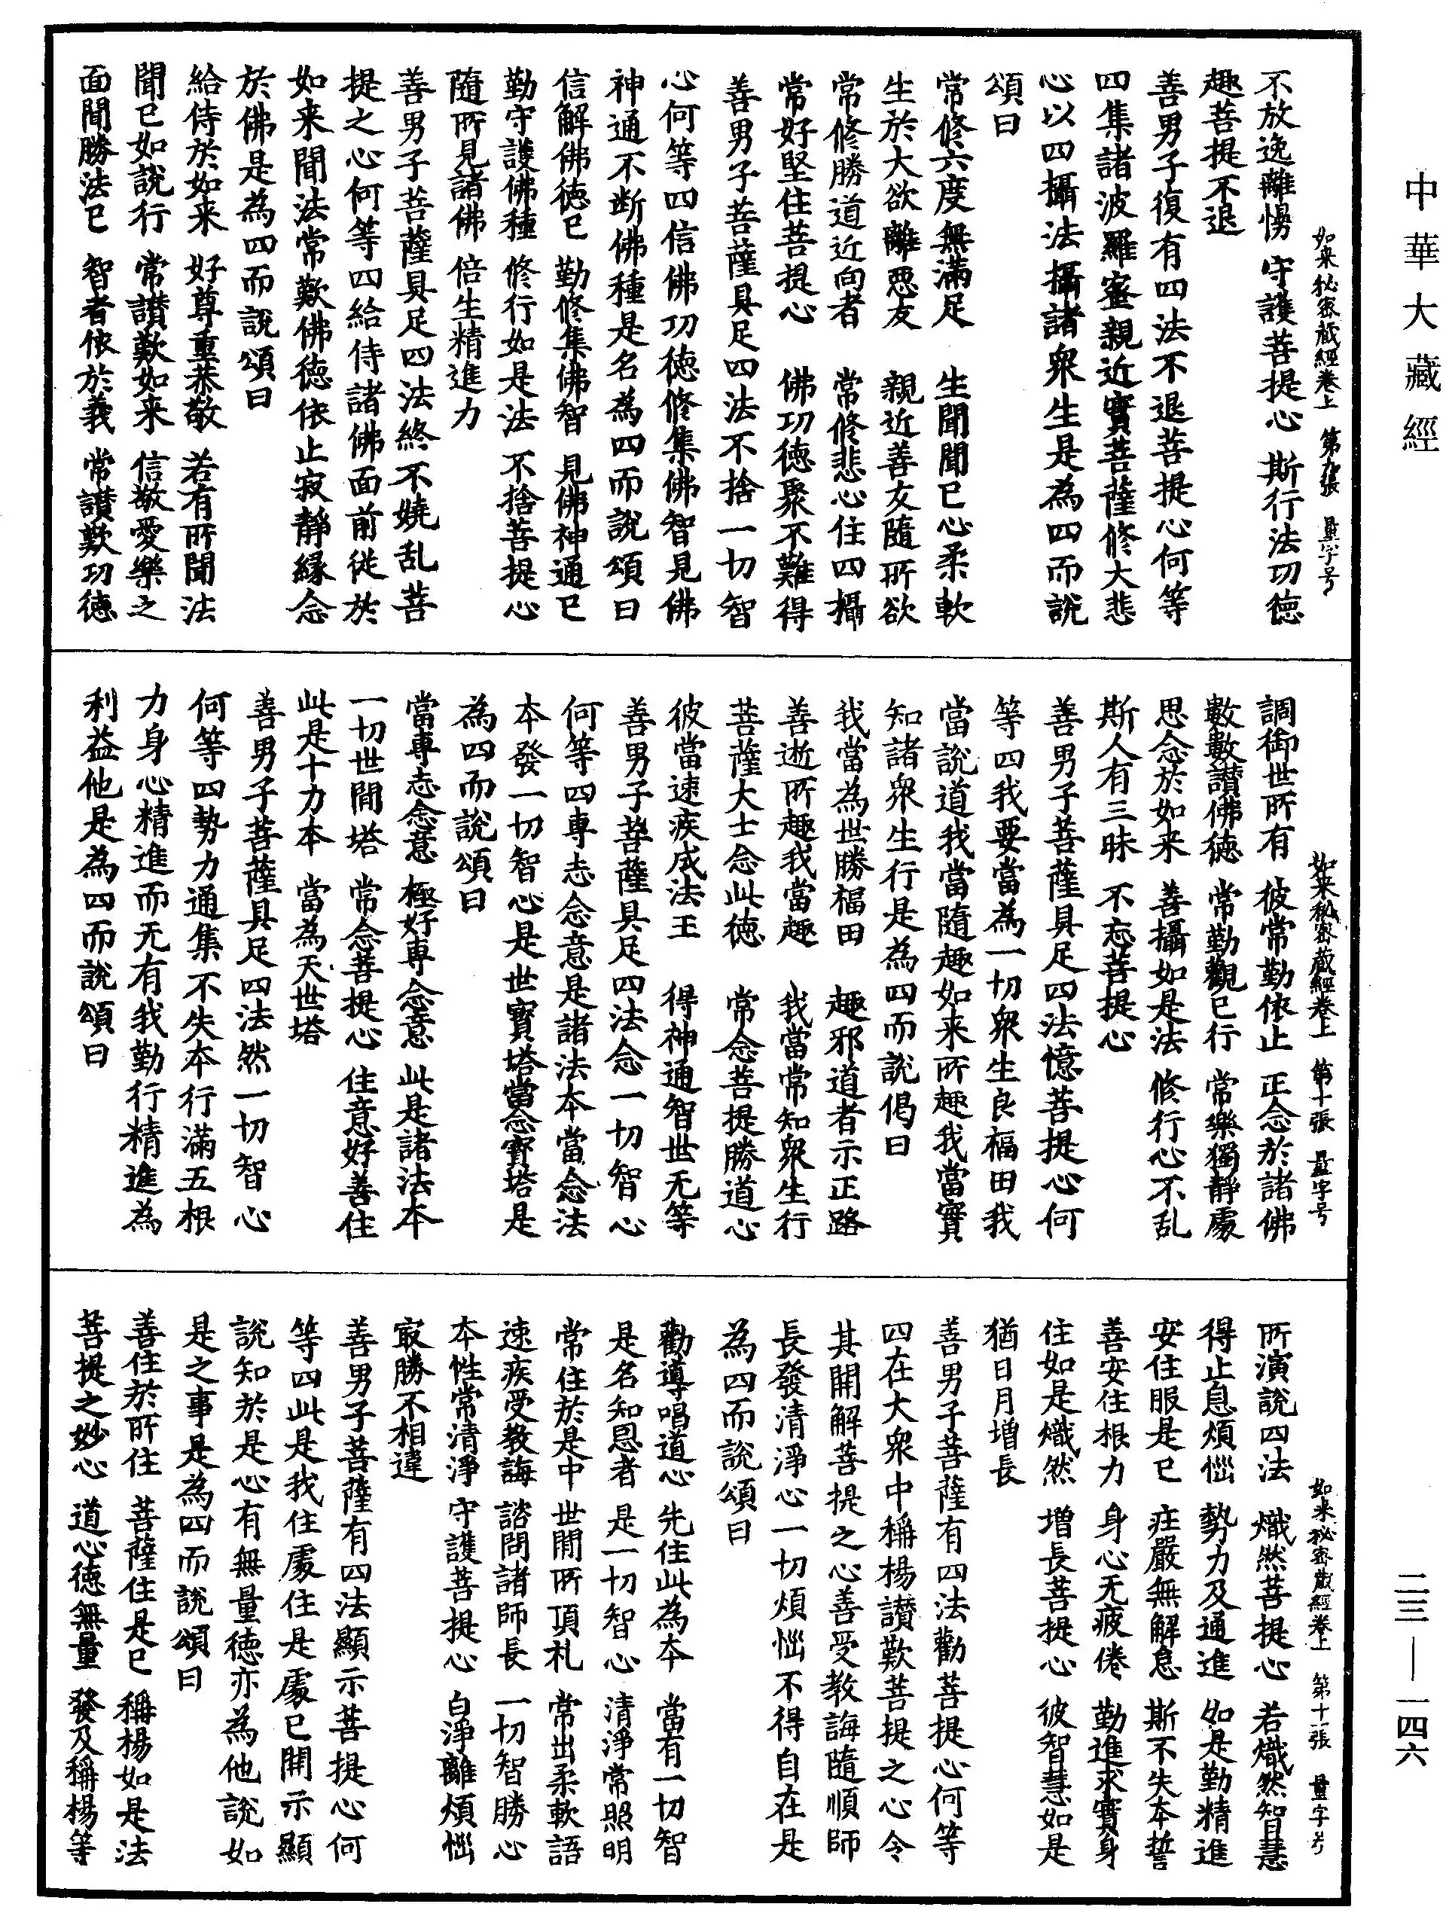 中華大藏經
如来秘密藏經卷上　第九張　量字号
不放逸離慢　守護菩提心　斯行法功德
趣菩提不退
善男子復有四法不退菩提心何等
四集諸波羅蜜親近實菩薩修大悲
心以四攝法攝諸衆生是為四而說
頌曰
常修六度無滿足　生聞聞已心柔軟
生於大欲離惡友　親近善友隨所欲
常修勝道近向者　常修悲心住四攝
常好堅住菩提心　佛功德聚不難得
善男子菩薩具足四法不捨一切智
心何等四信佛功德修集佛智見佛
神通不断佛種是名為四而說頌曰
信解佛德已　勤修集佛智　見佛神通已
勤守護佛種　修行如是法　不捨菩提心
隨所見諸佛　倍生精進力
善男子菩薩具足四法終不嬈乱菩
提之心何等四給侍諸佛面前從於
如来聞法常歎佛德依止寂靜緣念
於佛是為四而說頌曰
給侍於如来　好尊重恭敬　若有所聞法
聞已如說行　常讃歎如来　信敬愛樂之
面聞勝法已　智者依於義　常讃歎功德
如来秘密藏經卷上　第十張　量字号
調御世所有　彼常勤依止　正念於諸佛
數數讃佛德　常勤觀已行　常樂獨靜處
思念於如来　善攝如是法　修行心不乱
斯人有三昧　不忘菩提心
善男子菩薩具足四法憶菩提心何
等四我要當為一切衆生良福田我
當說道我當隨趣如来所趣我當實
知諸衆生行是為四而說偈曰
我當為世勝福田　趣邪道者示正路
善逝所趣我當趣　我當常知衆生行
菩薩大士念此德　常念菩提勝道心
彼當速疾成法王　得神通智世无等
善男子菩薩具足四法念一切智心
何等四專志念意是諸法本當念法
本發一切智心是世寶塔當念寶塔是
為四而說頌曰
當專志念意　極好專念意　此是諸法本
一切世間塔　常念菩提心　住意好善住
此是十力本　當為天世塔
善男子菩薩具足四法然一切智心
何等四勢力通集不失本行滿五根
力身心精進而无有我勤行精進為
利益他是為四而說頌曰
如来秘密藏經卷上　第十一張　量字号
所演說四法　熾然菩提心　若熾然智慧
得止息煩惱　勢力及通進　如是勤精進
安住服是已　莊嚴無解怠　斯不失本誓
善安住根力　身心无疲倦　勤進求實身
住如是熾然　增長菩提心　彼智慧如是
猶日月增長
善男子菩薩有四法勸菩提心何等
四在大衆中稱楊讃歎菩提之心令
其開解菩提之心善受教誨隨順師
長發清淨心一切煩惱不得自在是
為四而說頌曰
勸導唱道心　先住此為本　當有一切智
是名知恩者　是一切智心　清淨常照明
常住於是中　世間所頂礼　常出柔軟語
速疾受教誨　諮問諸師長　一切智勝心
本性常清淨　守護菩提心　白淨離煩惱
㝡勝不相違
善男子菩薩有四法顯示菩提心何
等四此是我住處住是處已開示顯
說知於是心有無量德亦為他說如
是之事是為四而說頌曰
善住於所住　菩薩住是已　稱楊如是法
菩提之妙心　道心德無量　發及稱楊等
二三—一四六